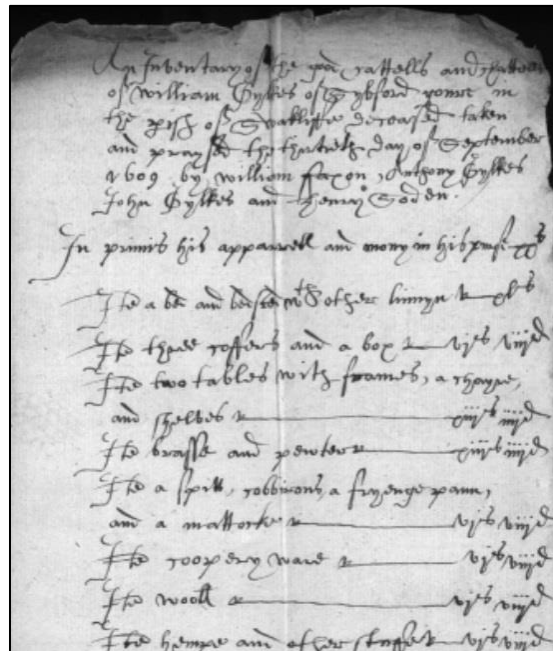 An Inventary of the goodes cattells and chattells
of William Gylkes of Sybford gowre in
the pish of Swakliffe deceased taken
and praysed the thirtieth day of September
1609 by William Faxon, Anthony Gylkes
John Gylkes and Henry Soden.
In primis his apparrell and mony in his purse xxs
Ite a bed and bedsted wth other linnyn xls
Ite three coffers and a box vjs viijd
Ite two tables with frames, a chayre,
and shelves xiijs iiijd
Ite brasse and pewter xiijs iiijd
Ite a spitt, cobbirons, a fryenge pann,
and a mattocke vjs viijd
Ite coopery ware vjs viijd
Ite wooll vjs viijd
Ite hempe and other stuffe vjs viijd